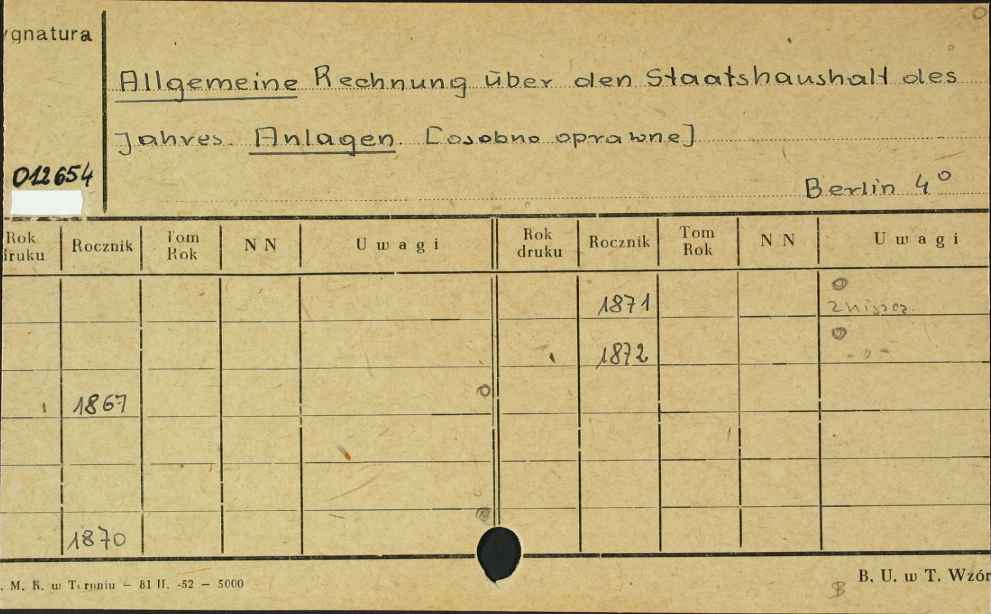 ygnatura
Allgemeine Rechnung über den Staatshaushalt des
Jahres. Anlagen. [osobno oprawne]
012654
Berlin 4°
Rok druku Rocznik Tom Rok NN Uwagi Rok druku Rocznik Tom Rok NN Uwagi
1871 zniszcz.
1872 - " -
1867
1870
. M. K. w Toruniu — 81 II. -52 — 5000
B. U. w T. Wzór